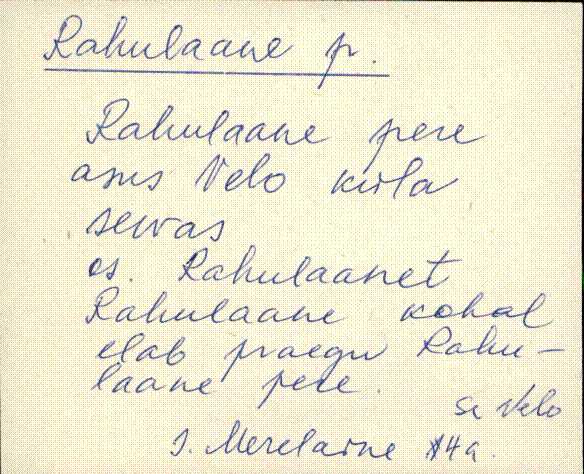 Rahulaane p.
Rahulaane pere
asus Velo küla
servas
os. Rahulaanet
Rahulaane kohal
elab praegu Rahu-
laane pere.
se Velo
J. Merelaine 14a.